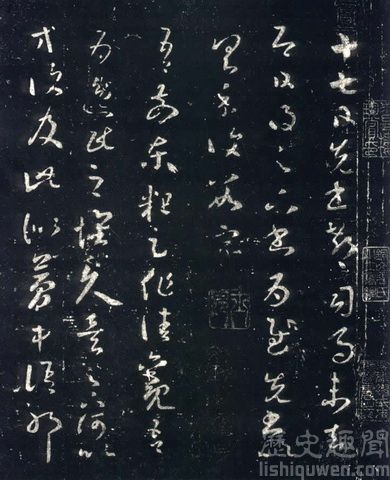 十七日先書郗司馬未去
即日得足下書為慰先書以
具示復數字
吾前東粗足作佳觀吾
為逸民之懷久矣足下何以
方復及此似夢中語耶
歷史趣聞
lishiquwen.com